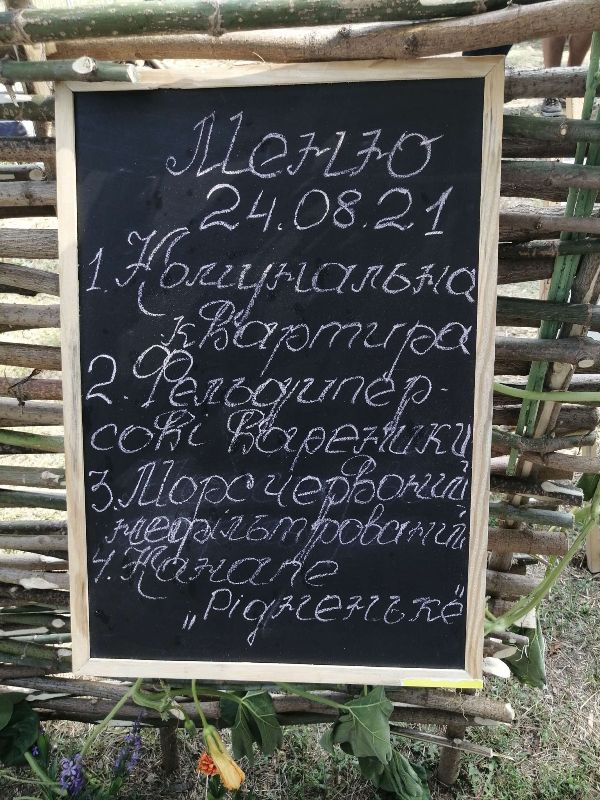 Меню
24.08.21
1. Комунальна
квартира
2. Фельдипер-
сові вареники
3. Морс червоний
нефільтрований
4. Канапе
„Рідненьке"